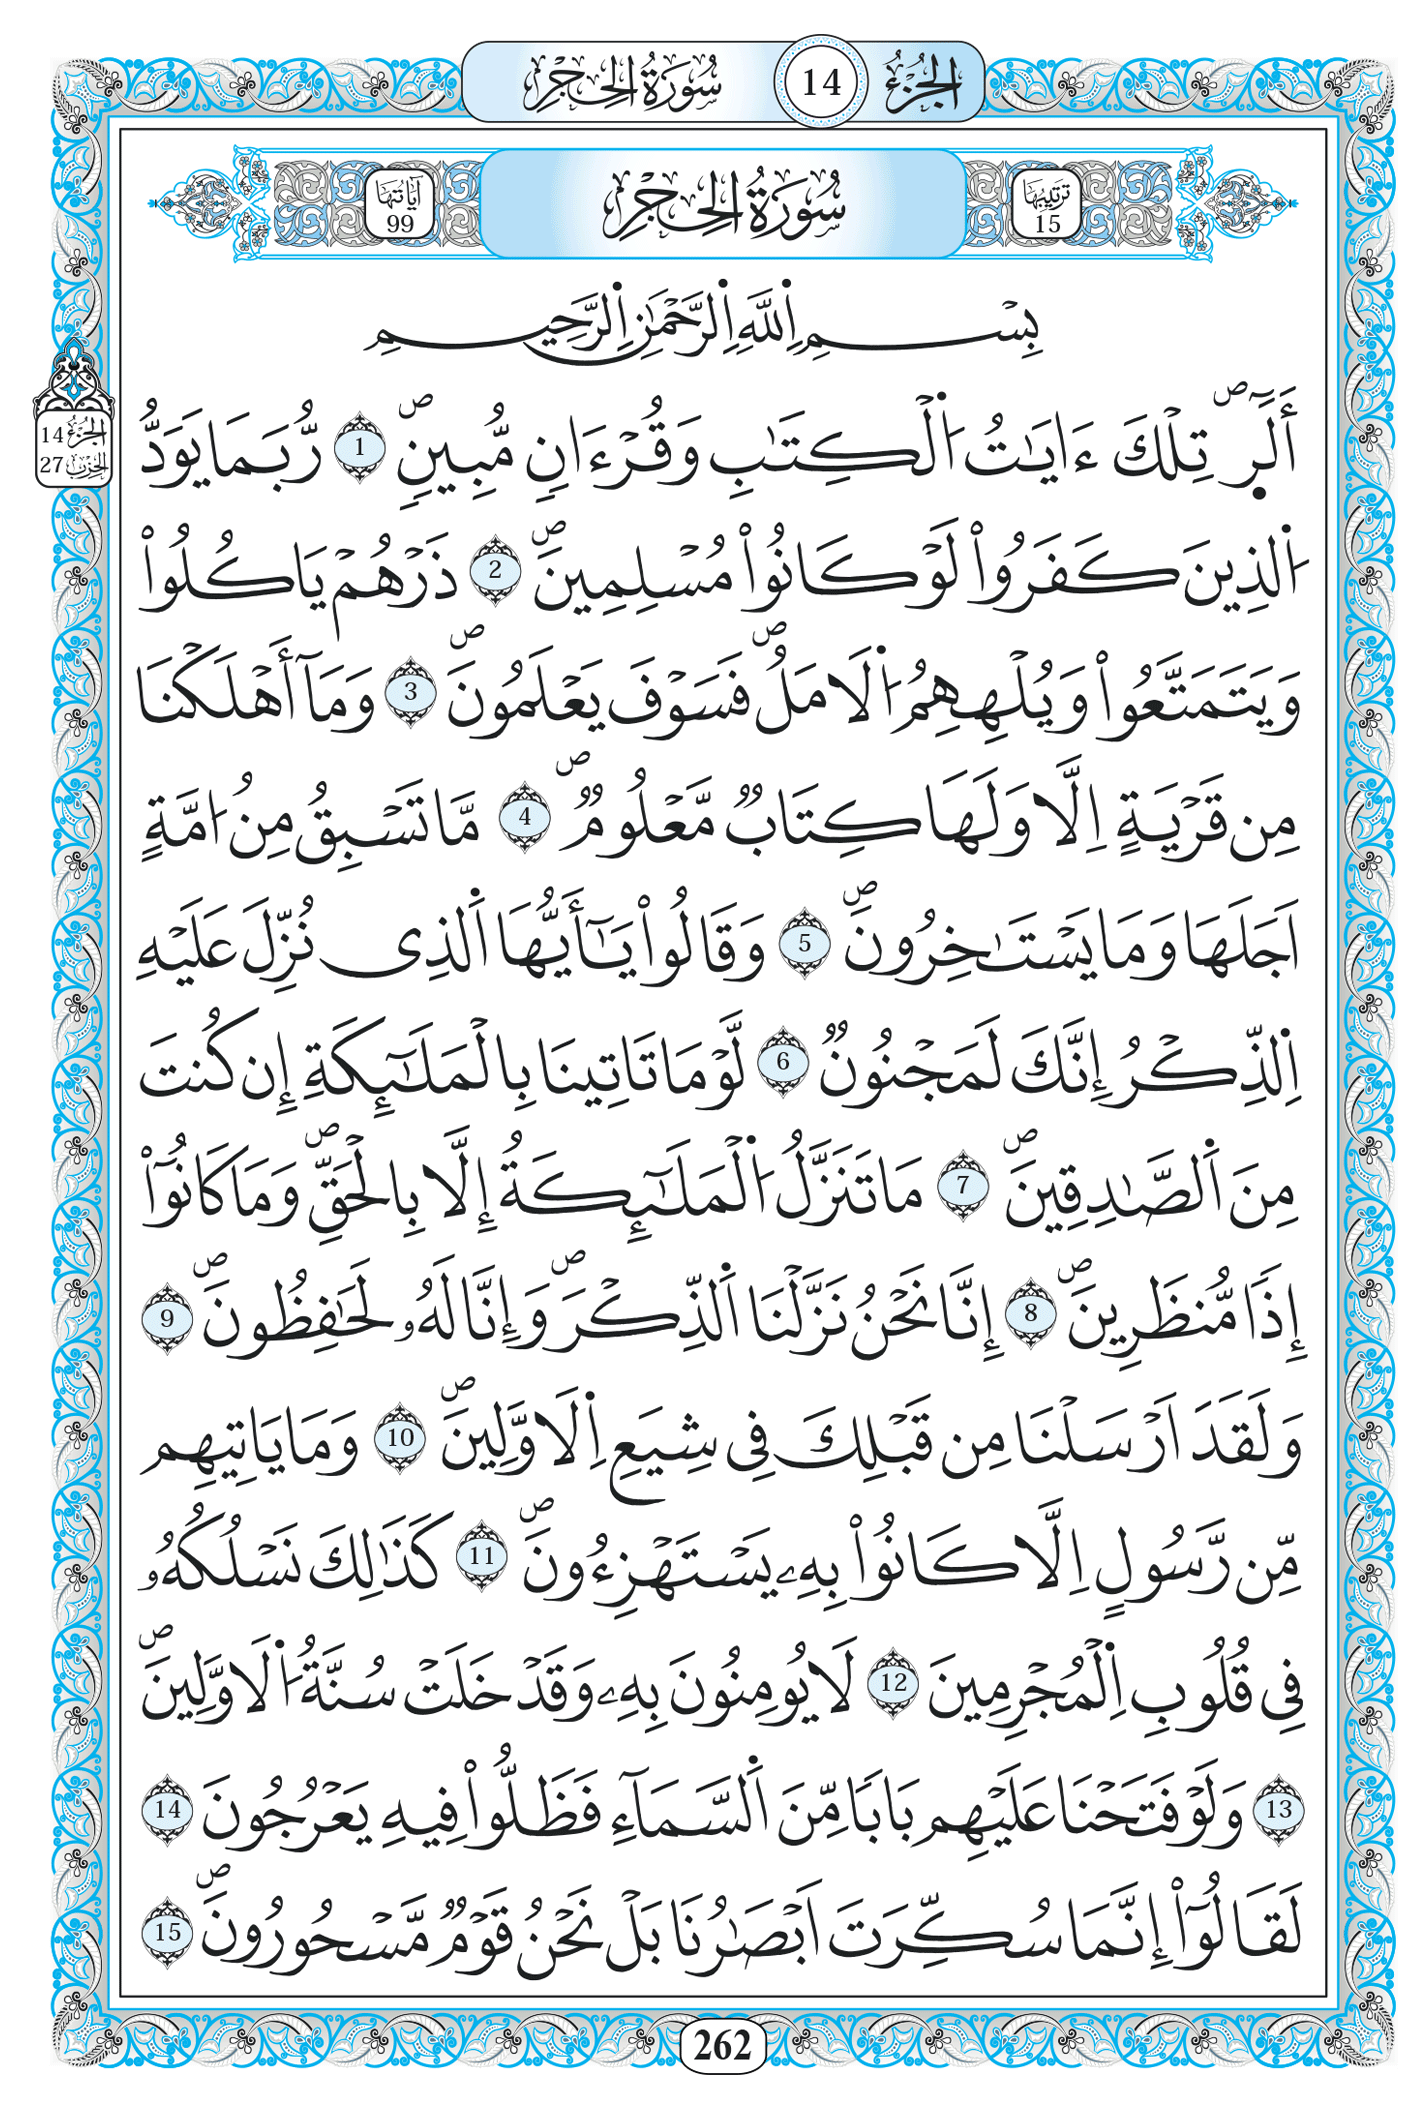 الجزء 14 سورة الحجر
ترتيبها 15 سُورَةُ الحِجْرِ آياتها 99
بِسْمِ اِ۬للَّهِ اِ۬لرَّحْمَٰنِ اِ۬لرَّحِيمِ
الجزء 14
الحزب 27
أَلَٓرۖ تِلْكَ ءَايَٰتُ اُ۬لْكِتَٰبِ وَقُرْءَانٖ مُّبِينٖۖ 1 رُّبَمَا يَوَدُّ
اُ۬لذِينَ كَفَرُواْ لَوْ كَانُواْ مُسْلِمِينَۖ 2 ذَرْهُمْ يَاكُلُواْ
وَيَتَمَتَّعُواْ وَيُلْهِهِمُ اُ۬لَامَلُۖ فَسَوْفَ يَعْلَمُونَۖ 3 وَمَآ أَهْلَكْنَا
مِن قَرْيَةٍ اِلَّا وَلَهَا كِتَابٞ مَّعْلُومٞۖ 4 مَّا تَسْبِقُ مِنُ ا۟مَّةٍ
اَجَلَهَا وَمَا يَسْتَٰخِرُونَۖ 5 وَقَالُواْ يَٰٓأَيُّهَا اَ۬لذِى نُزِّلَ عَلَيْهِ
اِ۬لذِّكْرُ إِنَّكَ لَمَجْنُونٞ 6 لَّوْ مَا تَاتِينَا بِالْمَلَٰٓئِكَةِ إِن كُنتَ
مِنَ اَ۬لصَّٰدِقِينَۖ 7 مَا تَنَزَّلُ اُ۬لْمَلَٰٓئِكَةُ إِلَّا بِالْحَقِّۖ وَمَا كَانُوٓاْ
إِذاٗ مُّنظَرِينَۖ 8 إِنَّا نَحْنُ نَزَّلْنَا اَ۬لذِّكْرَۖ وَإِنَّا لَهُۥ لَحَٰفِظُونَۖ 9
وَلَقَدَ اَرْسَلْنَا مِن قَبْلِكَ فِى شِيَعِ اِ۬لَاوَّلِينَۖ 10 وَمَا يَاتِيهِم
مِّن رَّسُولٍ اِلَّا كَانُواْ بِهِۦ يَسْتَهْزِءُونَۖ 11 كَذَٰلِكَ نَسْلُكُهُۥ
فِى قُلُوبِ اِ۬لْمُجْرِمِينَ 12 لَا يُومِنُونَ بِهِۦ وَقَدْ خَلَتْ سُنَّةُ اُ۬لَاوَّلِينَۖ
13 وَلَوْ فَتَحْنَا عَلَيْهِم بَاباٗ مِّنَ اَ۬لسَّمَآءِ فَظَلُّواْ فِيهِ يَعْرُجُونَ 14
لَقَالُوٓاْ إِنَّمَا سُكِّرَتَ اَبْصَٰرُنَا بَلْ نَحْنُ قَوْمٞ مَّسْحُورُونَۖ 15
262